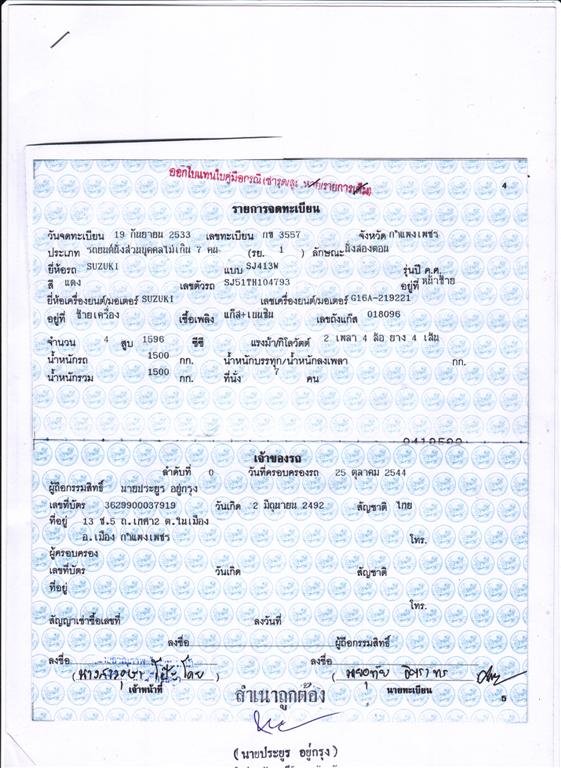 ออกใบแทนใบคู่มือกรณีชำรุด
4
รายการจดทะเบียน
วันจดทะเบียน 19 กันยายน 2533 เลขทะเบียน กข 3557 จังหวัด กำแพงเพชร
ประเภท รถยนต์นั่งส่วนบุคคลไม่เกิน 7 คน (รย. 1 ) ลักษณะ นั่งสองตอน
ยี่ห้อรถ SUZUKI แบบ SJ413W รุ่นปี ค.ศ.
สี แดง เลขตัวรถ SJ51TH104793 อยู่ที่ หน้าซ้าย
ยี่ห้อเครื่องยนต์/มอเตอร์ SUZUKI เลขเครื่องยนต์/มอเตอร์ G16A-219221
อยู่ที่ ซ้ายเครื่อง เชื้อเพลิง แก๊ส+เบนซิน เลขถังแก๊ส 018096
จำนวน 4 สูบ 1596 ซีซี แรงม้า/กิโลวัตต์ 2 เพลา 4 ล้อ ยาง 4 เส้น
น้ำหนักรถ 1500 กก. น้ำหนักบรรทุก/น้ำหนักลงเพลา กก.
น้ำหนักรวม 1500 กก. ที่นั่ง 7 คน
เจ้าของรถ
ลำดับที่ 0 วันที่ครอบครองรถ 25 ตุลาคม 2544
ผู้ถือกรรมสิทธิ์ นายประยูร อยู่กรุง
เลขที่บัตร 3629900037919 วันเกิด 2 มิถุนายน 2492 สัญชาติ ไทย
ที่อยู่ 13 ซ.5 ถ.เทศา2 ต.ในเมือง
อ.เมือง กำแพงเพชร โทร.
ผู้ครอบครอง
เลขที่บัตร วันเกิด สัญชาติ
ที่อยู่
โทร.
สัญญาเช่าซื้อเลขที่ ลงวันที่
ลงชื่อ ผู้ถือกรรมสิทธิ์
ลงชื่อ ลงชื่อ
เจ้าหน้าที่ นายทะเบียน
สำเนาถูกต้อง
5
(นายประยูร อยู่กรุง)